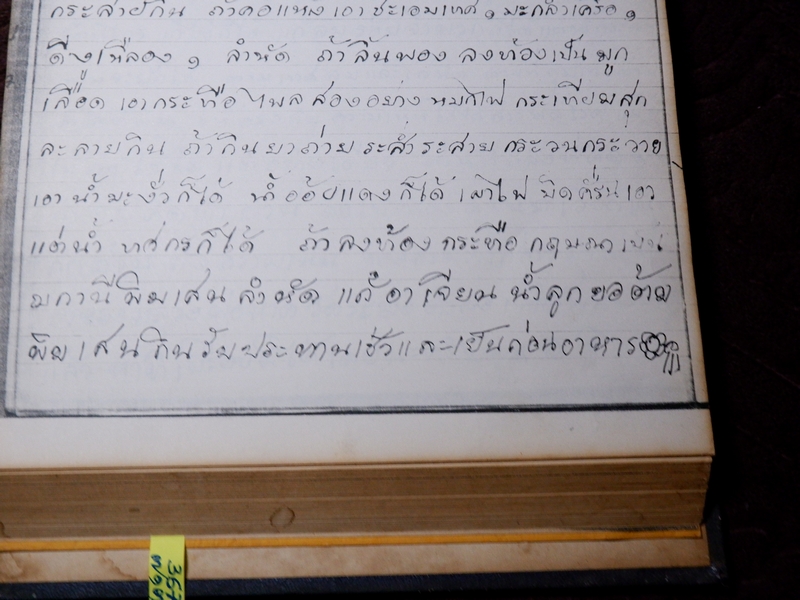 กระสายกิน ถ้าคอแห้ง เอา ชะเอมเทศ ๑ มะกล่ำเครือ ๑
ดีงูเหลือง ๑ รำหัด ถ้าลิ้นพอง ลงท้องเป็นมูก
เลือด เอากระทือ ไพล สองอย่าง หมกไฟ กระเทียมสุก
ละลายกิน ถ้ากินยาถ่าย ระส่ำระสาย กระวนกระวาย
เอาน้ำมะงั่วก็ได้ น้ำอ้อยแดงก็ได้ เผาไฟ บิด เอา
แต่น้ำ ก็ได้ ถ้าลงท้อง กระทือ กฤษณา
พิมเสน รำหัด แก้อาเจียน น้ำลูกยอต้ม
พิมเสน กิน รับประทานเช้าและเย็นก่อนอาหาร
367